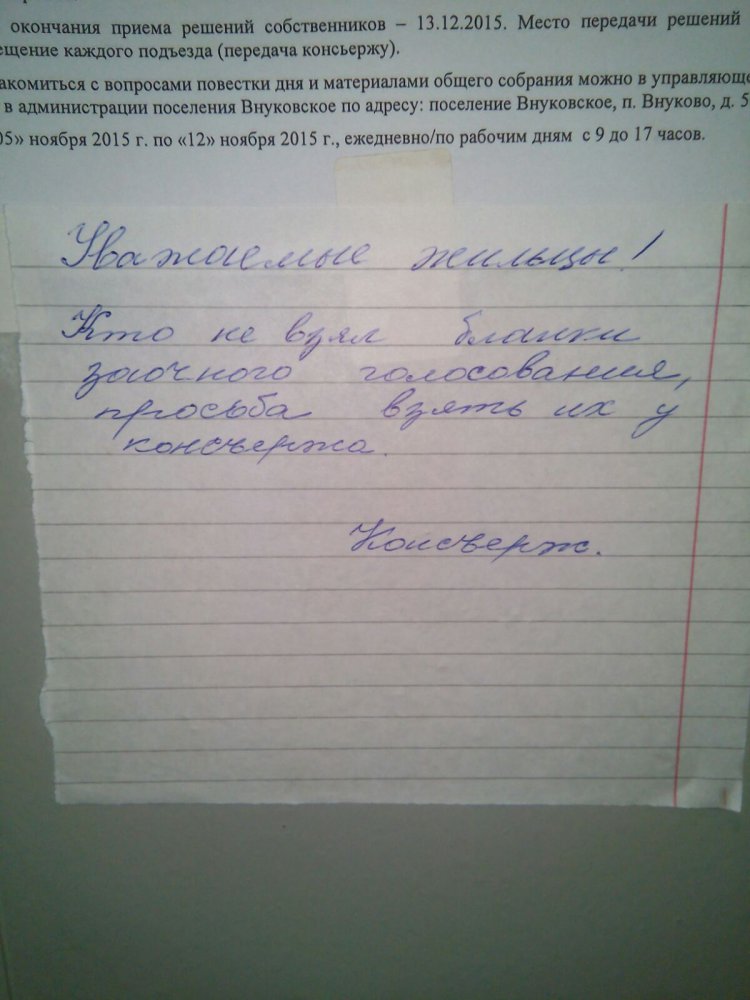 окончания приема решений собственников – 13.12.2015. Место передачи решений
ещение каждого подъезда (передача консьержу).
акомиться с вопросами повестки дня и материалами общего собрания можно в управляюще
в администрации поселения Внуковское по адресу: поселение Внуковское, п. Внуково, д. 5
05» ноября 2015 г. по «12» ноября 2015 г., ежедневно/по рабочим дням с 9 до 17 часов.
Уважаемые жильцы!
Кто не взял бланки
заочного голосования,
просьба взять их у
консъержа.
Консъерж.